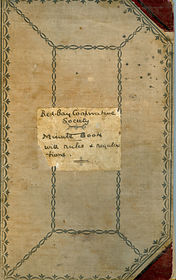 Red Bay Cooperative
Society
Minute Book
with rules & regula
tions.